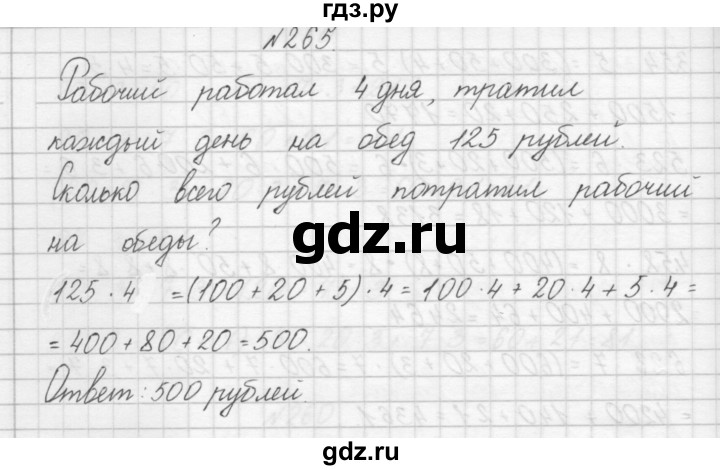 гдз.ру
№265.
Рабочий работал 4 дня, тратил
каждый день на обед 125 рублей.
Сколько всего рублей потратил рабочий
на обеды?
gdz.ru
125 · 4 =(100+20+5)·4=100·4+20·4+5·4=
=400+80+20=500.
Ответ: 500 рублей.
gdz.ru